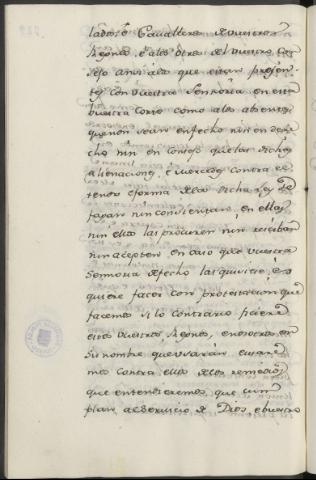 Cavalleros de vuestros
Regnos, e a los otros del vuestro Con
sejo ansi a los que estan presen
tes con vuestra Señoria en esta
vuestra Corte como a los absentes
que non sean en fecho nin en dere
cho nin en consejo que las dichas
alienaciones, e mercedes contra el
tenor e forma de la dicha Ley se
fagan nin consientan en ellas
nin ellos las procuren nin reciban
nin acepten en caso que vuestra
Sennoria de fecho las quisiere, e
quiere facer con protestacion que
facemos si lo contrario ficiere
estos vuestros Regnos, e nosotros en
su nombre que usarán e usare
mos contra ellos de los remedios
que entendieremos que cum
plan al servicio de Dios, e vuestro